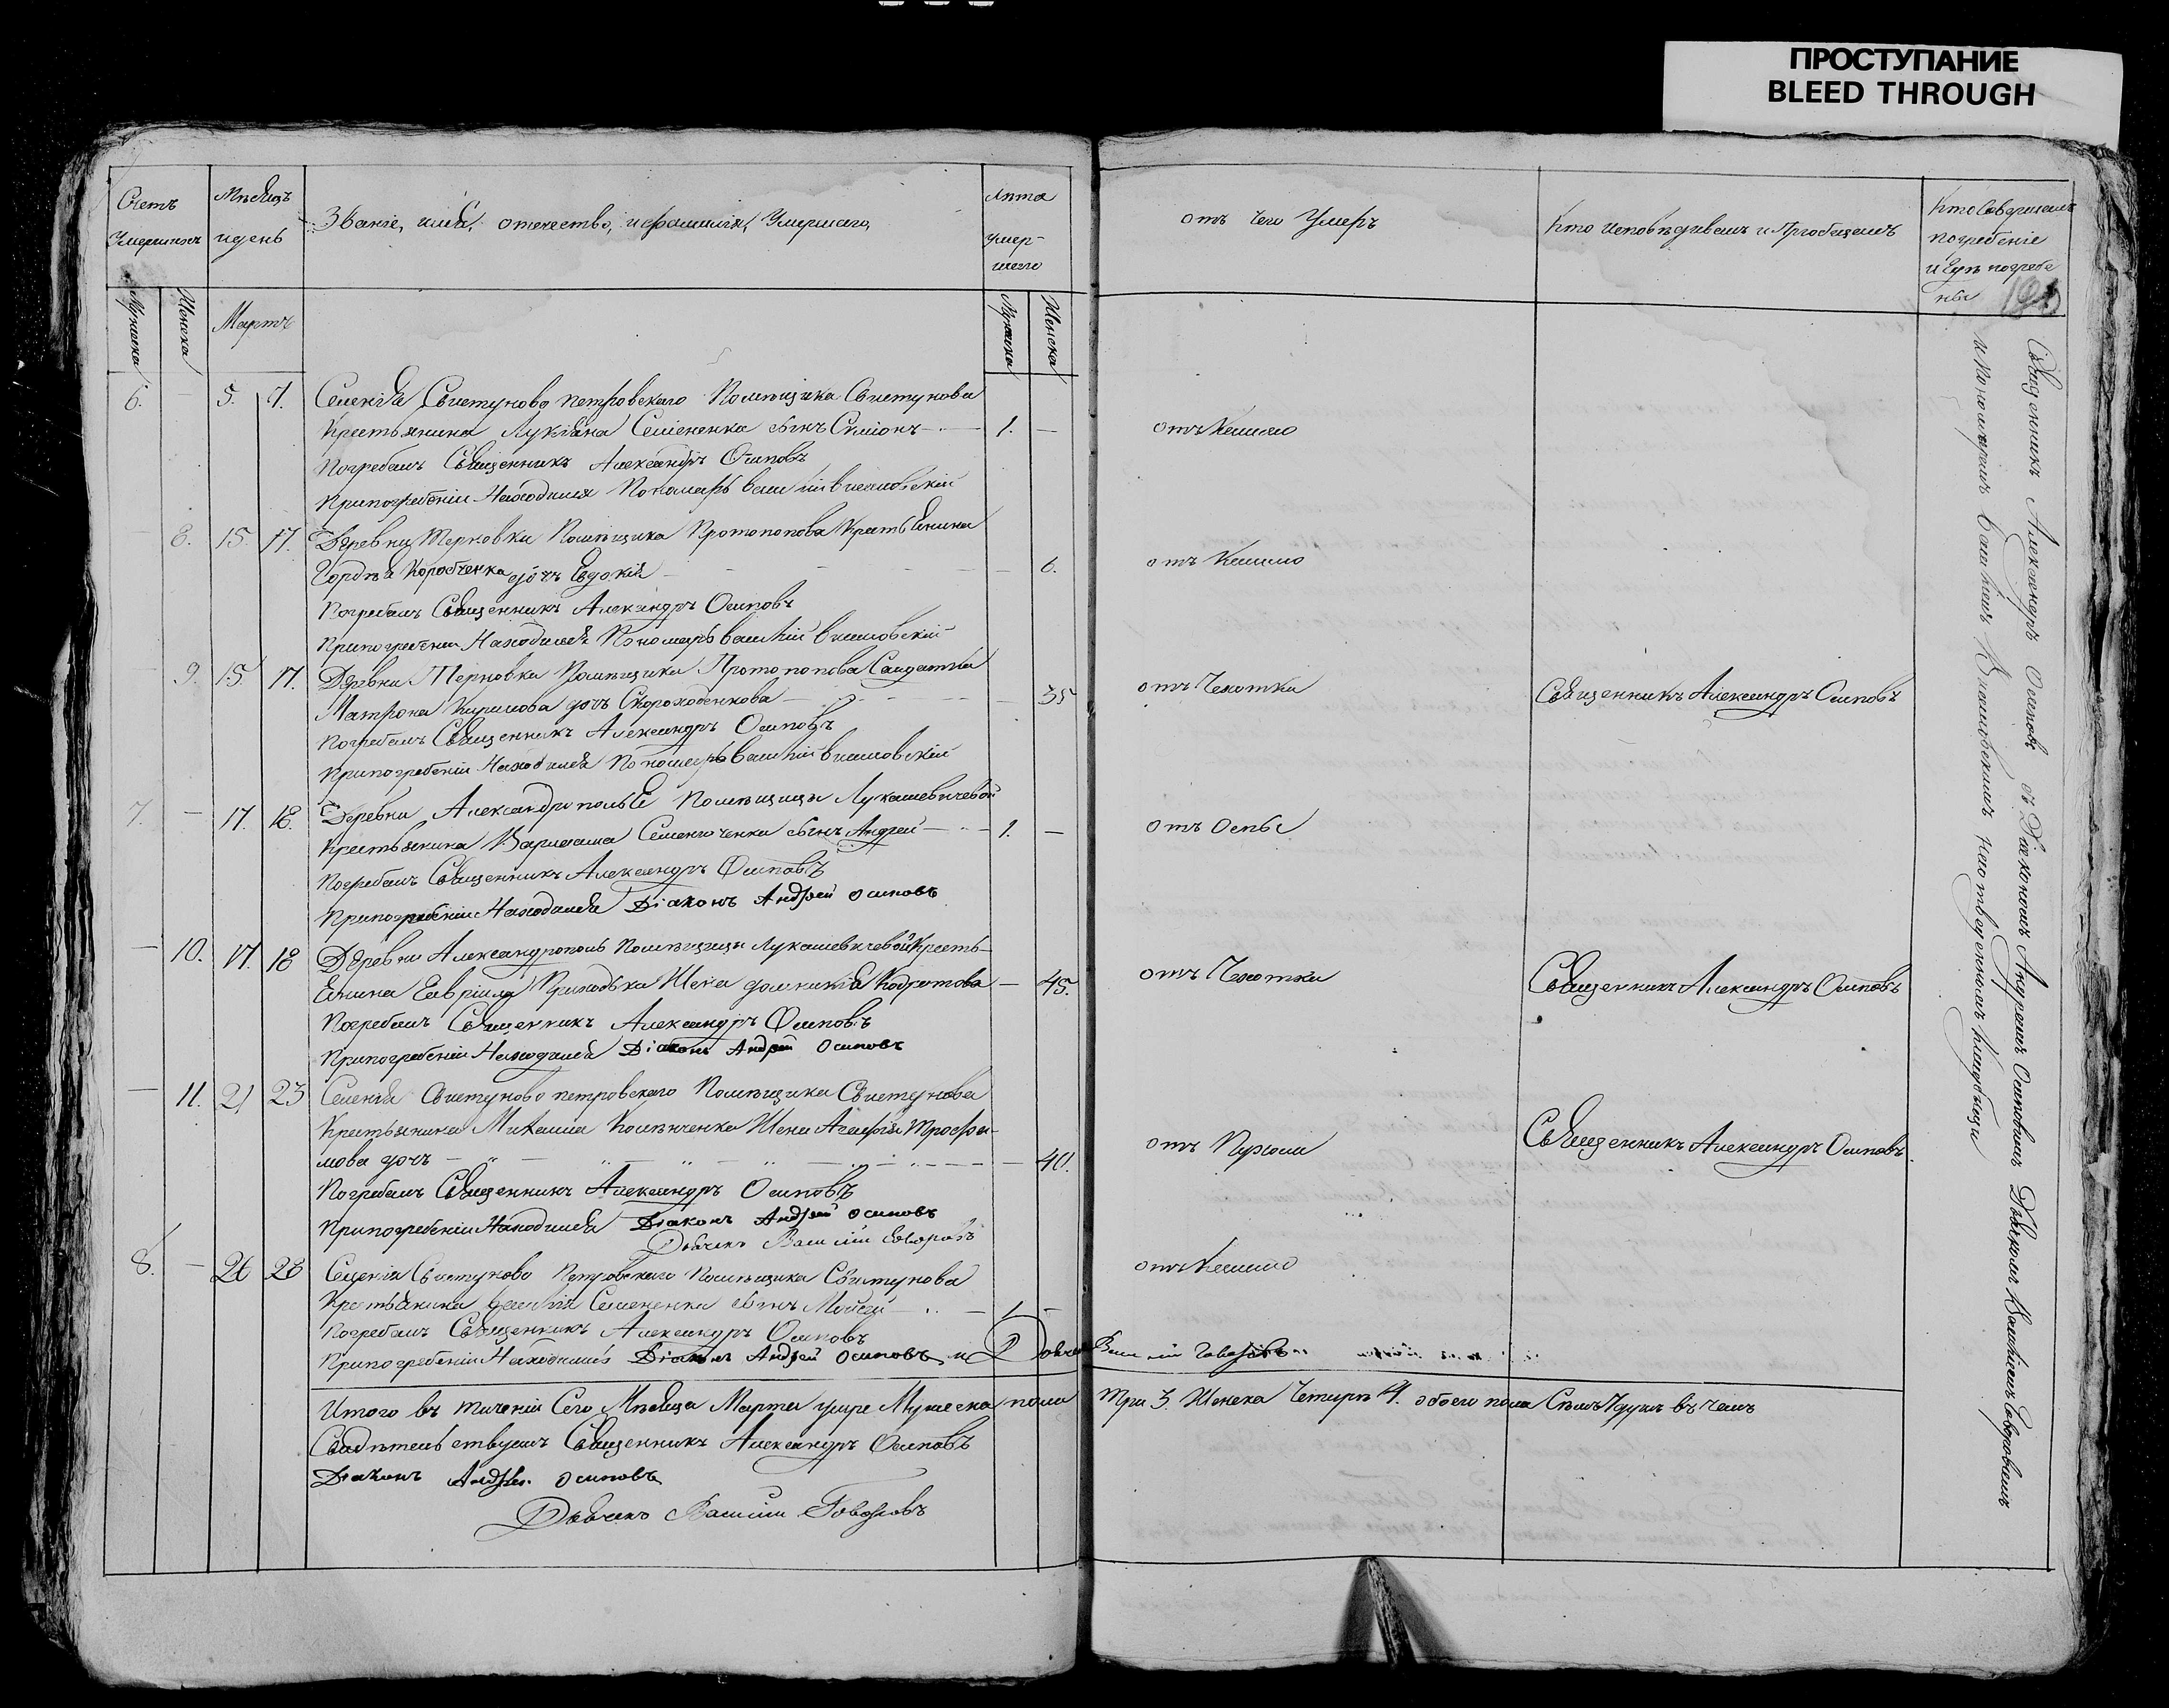 ПРОСТУПАНИЕ
BLEED THROUGH
Счетъ
Умершихъ
Мѣсяцъ
и день
Званіе, имя, отечество, и фамилія, Умершаго
Лѣта
умер-
шего
отъ чего Умеръ
Кто исповѣдывалъ и Пріобщалъ
Кто Совершалъ
погребеніе
и Гдѣ погребе
ны
Мужеска
Женска
Мартъ
Мужска
Женска
6. — 5. 7. Селенія Свистуново петровскаго Помѣщика Свистунова
Крестьянина Лукіяна Семененка сынъ Симіонъ — 1. — отъ Кашлю
Погребалъ Священникъ Александръ Осиповъ
При погребеніи Находился Пономарь Василій
— 8. 15. 17. Деревни Терновки Помѣщика Протопопова Крестьянина
Гордѣя Коробченка дочь Евдокія — 6. отъ Кашлю
Погребалъ Священникъ Александръ Осиповъ
При погребеніи Находился Пономарь Василій
— 9. 15. 17. Деревни Терновки Помѣщика Протопопова Салдатка
Матрона Кирилова дочь Скороходенкова — 35 отъ Чехотки Священникъ Александръ Осиповъ
Погребалъ Священникъ Александръ Осиповъ
При погребеніи Находился Пономарь Василій
7. — 17. 18. Деревни Александрополье Помѣщицы Лукашевичевой
Крестьянина Варлаама сынъ Андрей — 1. — отъ Оспы
Погребалъ Священникъ Александръ Осиповъ
При погребеніи Находился Діаконъ Андрей Осиповъ
— 10. 17. 18 Деревни Александрополь Помѣщицы Лукашевичевой Кресть-
янина Гавріила Приходька Жена Кодратова — 45. отъ Чехотки Священникъ Александръ Осиповъ
Погребалъ Священникъ Александръ Осиповъ
При погребеніи Находился Діаконъ Андрей Осиповъ
— 11. 21 23 Селенія Свистуново петровскаго Помѣщика Свистунова
Крестьянина Михаила Жена Агафія Трофи-
мова дочь — 40. отъ Священникъ Александръ Осиповъ
Погребалъ Священникъ Александръ Осиповъ
При погребеніи Находился Діаконъ Андрей Осиповъ
Дьячекъ Василій Говоровъ
8. — 26 28 Селенія Свистуново Петровскаго Помѣщика Свистунова
Крестьянина Василія Семененка сынъ Мойсей — 1 — отъ Кашлю
Погребалъ Священникъ Александръ Осиповъ
При погребеніи Находились Діаконъ Андрей Осиповъ и Дьячекъ Василій Говоровъ
Итого въ теченіи Сего Мѣсяца Марта умре Мужеска пола Три 3. Женска Четыре 4. обоего пола Семъ 7 душъ въ чемъ
Свидѣтельствуемъ Священникъ Александръ Осиповъ
Діаконъ Андрей Осиповъ
Дьячекъ Василій Говоровъ
Священникъ Александръ Осиповъ съ Діякономъ Андреемъ Осиповымъ Дьячкомъ Василіемъ Говоровымъ
и Пономаремъ Василіемъ на отведенномъ кладбищи